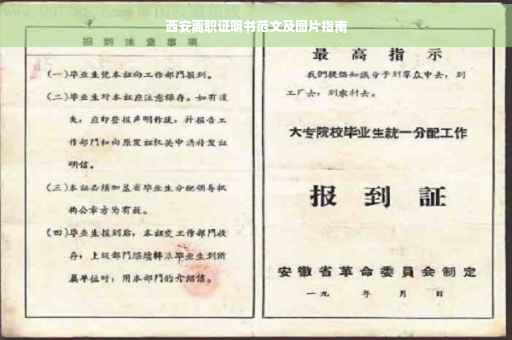 西安离职证明书范文及图片指南
报到注意事项
(一)毕业生凭本证向工作部门报到。
(二)毕业生对本证应注意保存。如有遗
失，应即登报声明作废，并报告工
作部门和向原发证机关申请补发证
明信。
(三)本证必须加盖省毕业生分配领导机
构公章方为有效。
(四)毕业生报到后，本证交工作部门收
存；上级部门继续转派毕业生到所
属单位时，用本部门的介绍信。
最高指示
我们提倡知识分子到群众中去，到
工厂去，到农村去。
大专院校毕业生统一分配工作
报到证
安徽省革命委員会制定
一九 年 月 日